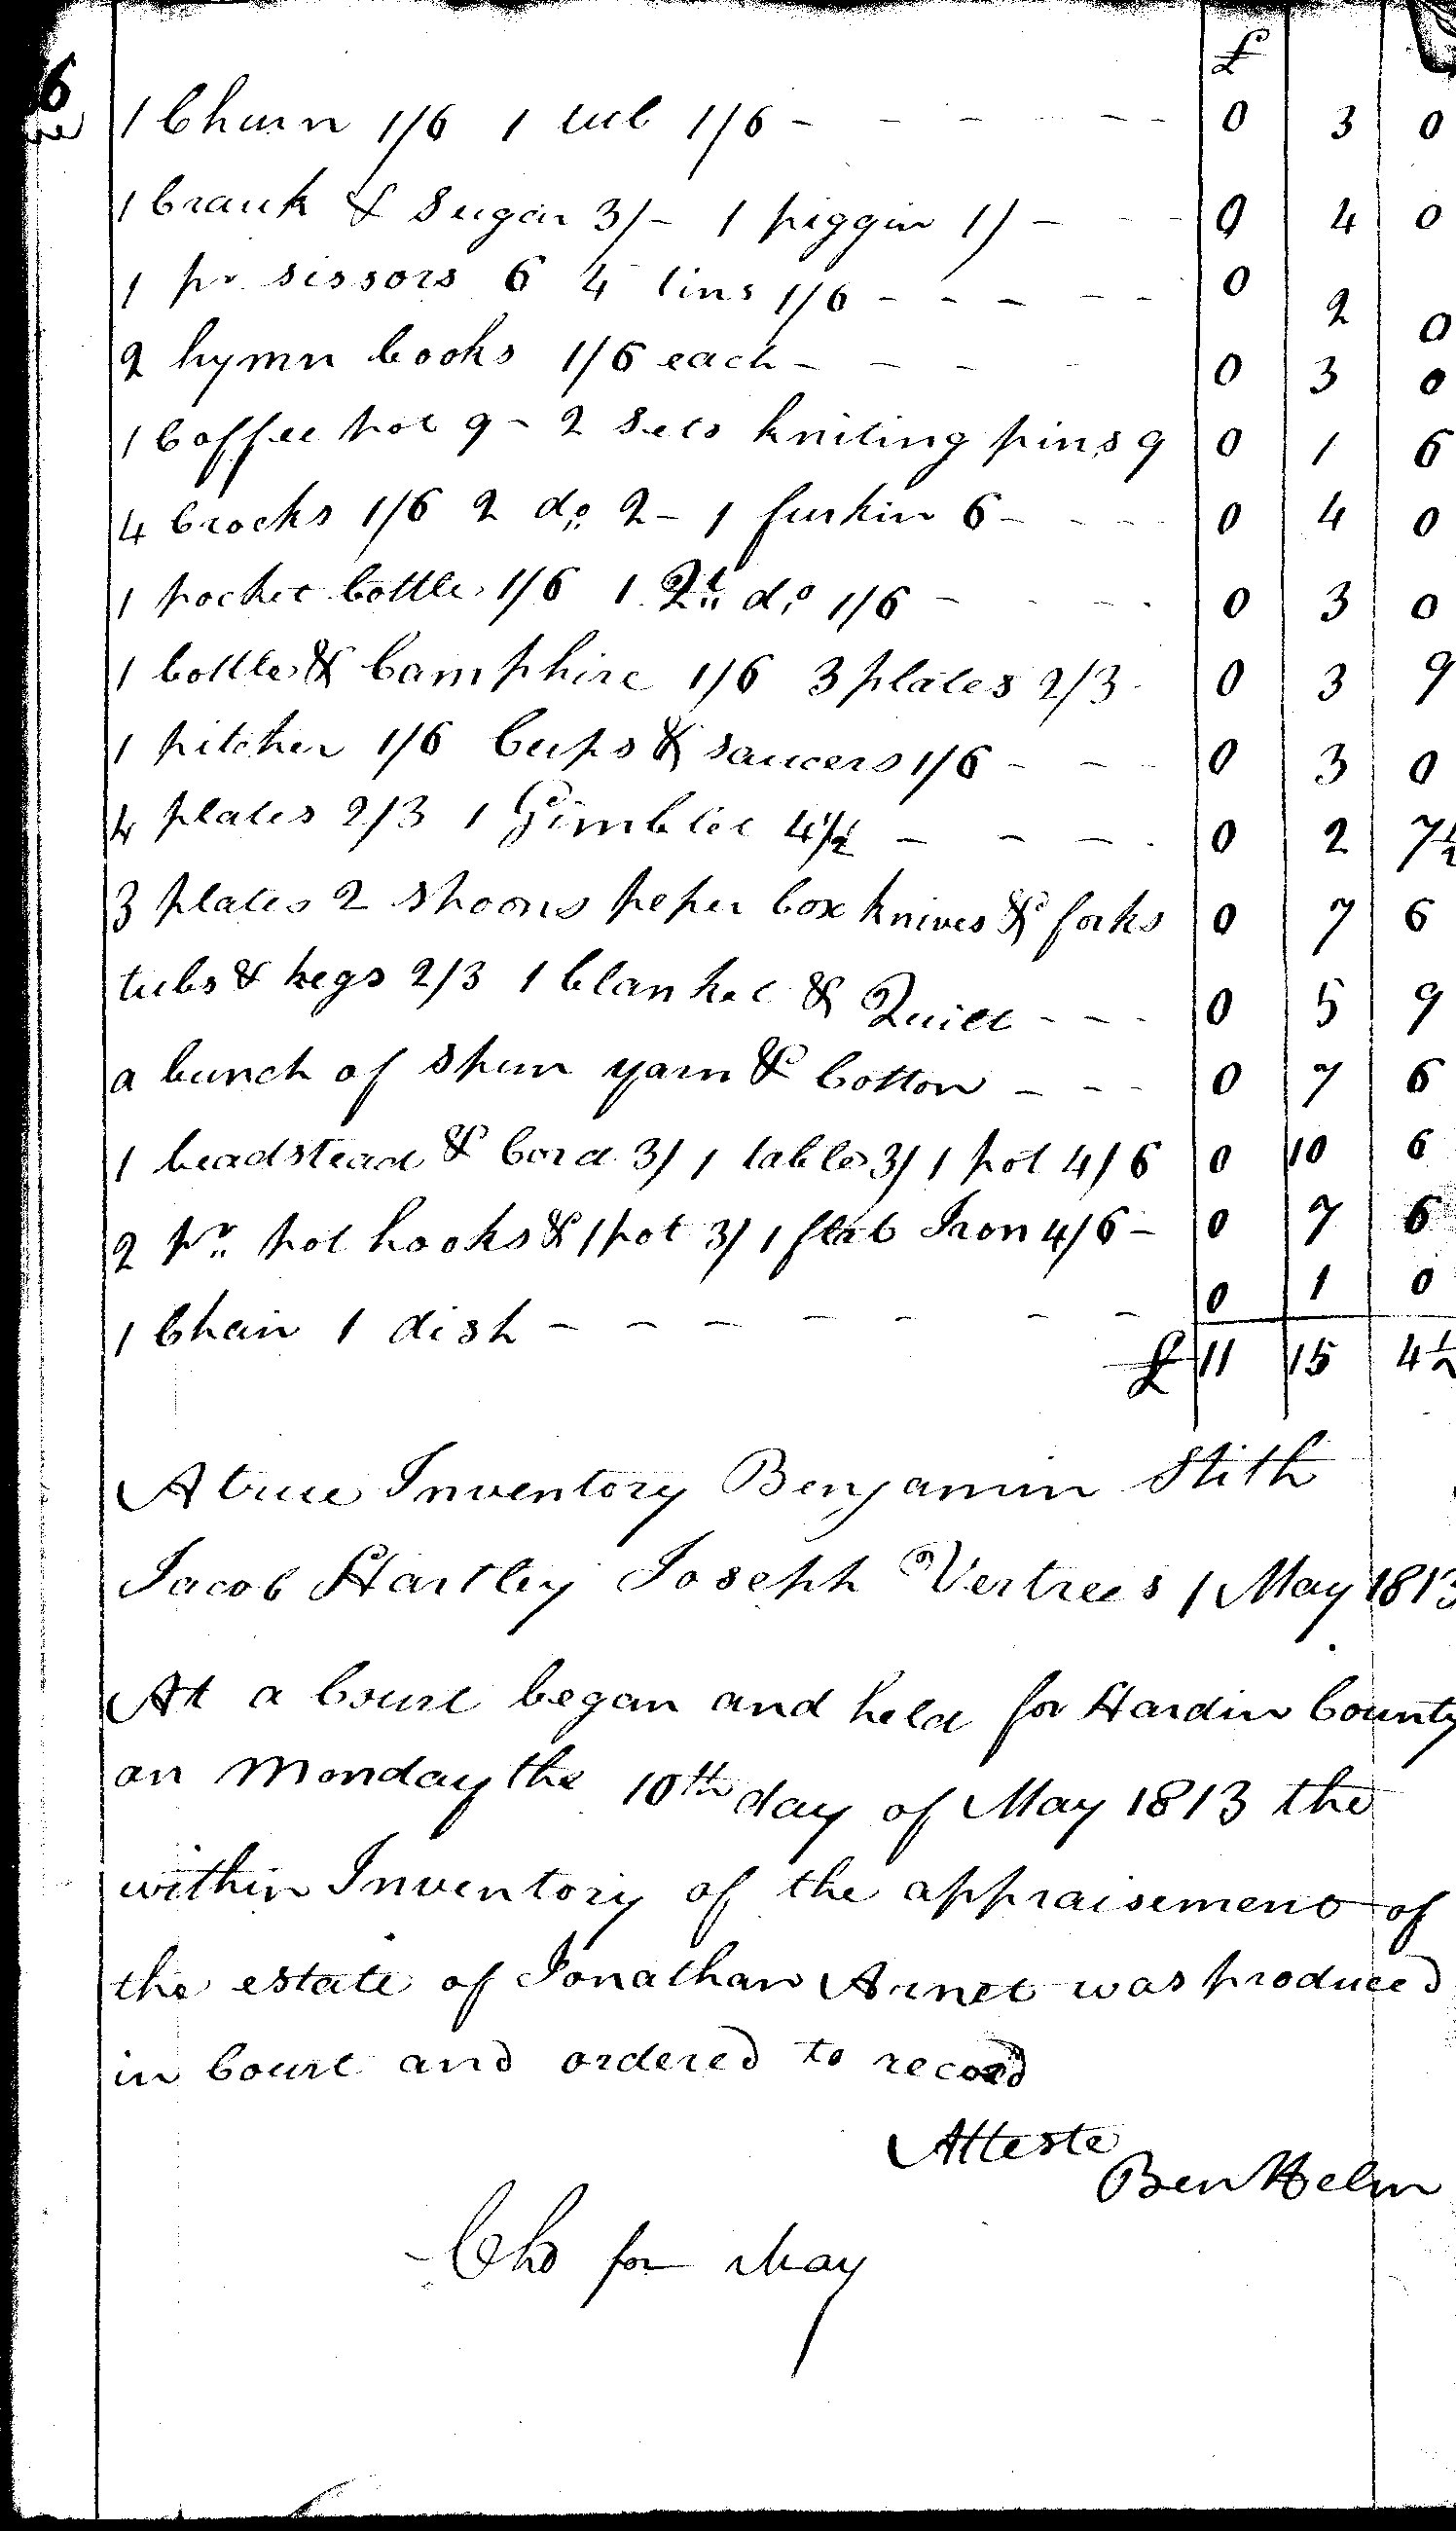 6
£
1 Churn 1/6 1 tub 1/6 - - - - - - 0 3 0
1 Crauk & Sugar 3/- 1 piggin 1/ - - - 0 4 0
1 pr. sissors 6 4 tins 1/6 - - - - - 0 2 0
2 hymn books 1/6 each - - - - 0 3 0
1 Coffee pot 9 - 2 sets kniting pins 9 0 1 6
4 Crocks 1/6 2 do 2 - 1 furkin 6 - - - - 0 4 0
1 pocket bottle 1/6 1 Qt do 1/6 - - - - 0 3 0
1 bottle & Camphire 1/6 3 plates 2/3 - 0 3 9
1 pitcher 1/6 Cups & saucers 1/6 - - - 0 3 0
4 plates 2/3 1 Gimblet 4½ - - - - 0 2 7½
3 plates 2 spoons peper box knives & forks 0 7 6
tubs & kegs 2/3 1 blanket & Quilt - - - 0 5 9
a bunch of spun yarn & Cotton - - - 0 7 6
1 beadstead & Cord 3/ 1 table 3/ 1 pot 4/6 0 10 6
2 pr. pot hooks & 1 pot 3/ 1 flat Iron 4/6 - 0 7 6
1 Chair 1 dish - - - - - - - 0 1 0
£ 11 15 4½
A true Inventory Benjamin Stith
Jacob Hartley Joseph Vertrees 1 May 1813
At a Court began and held for Hardin County
on Monday the 10th day of May 1813 the
within Inventory of the appraisement of
the estate of Jonathan Arnet was produced
in Court and ordered to record
Atteste
Ben Helm
Chd for May